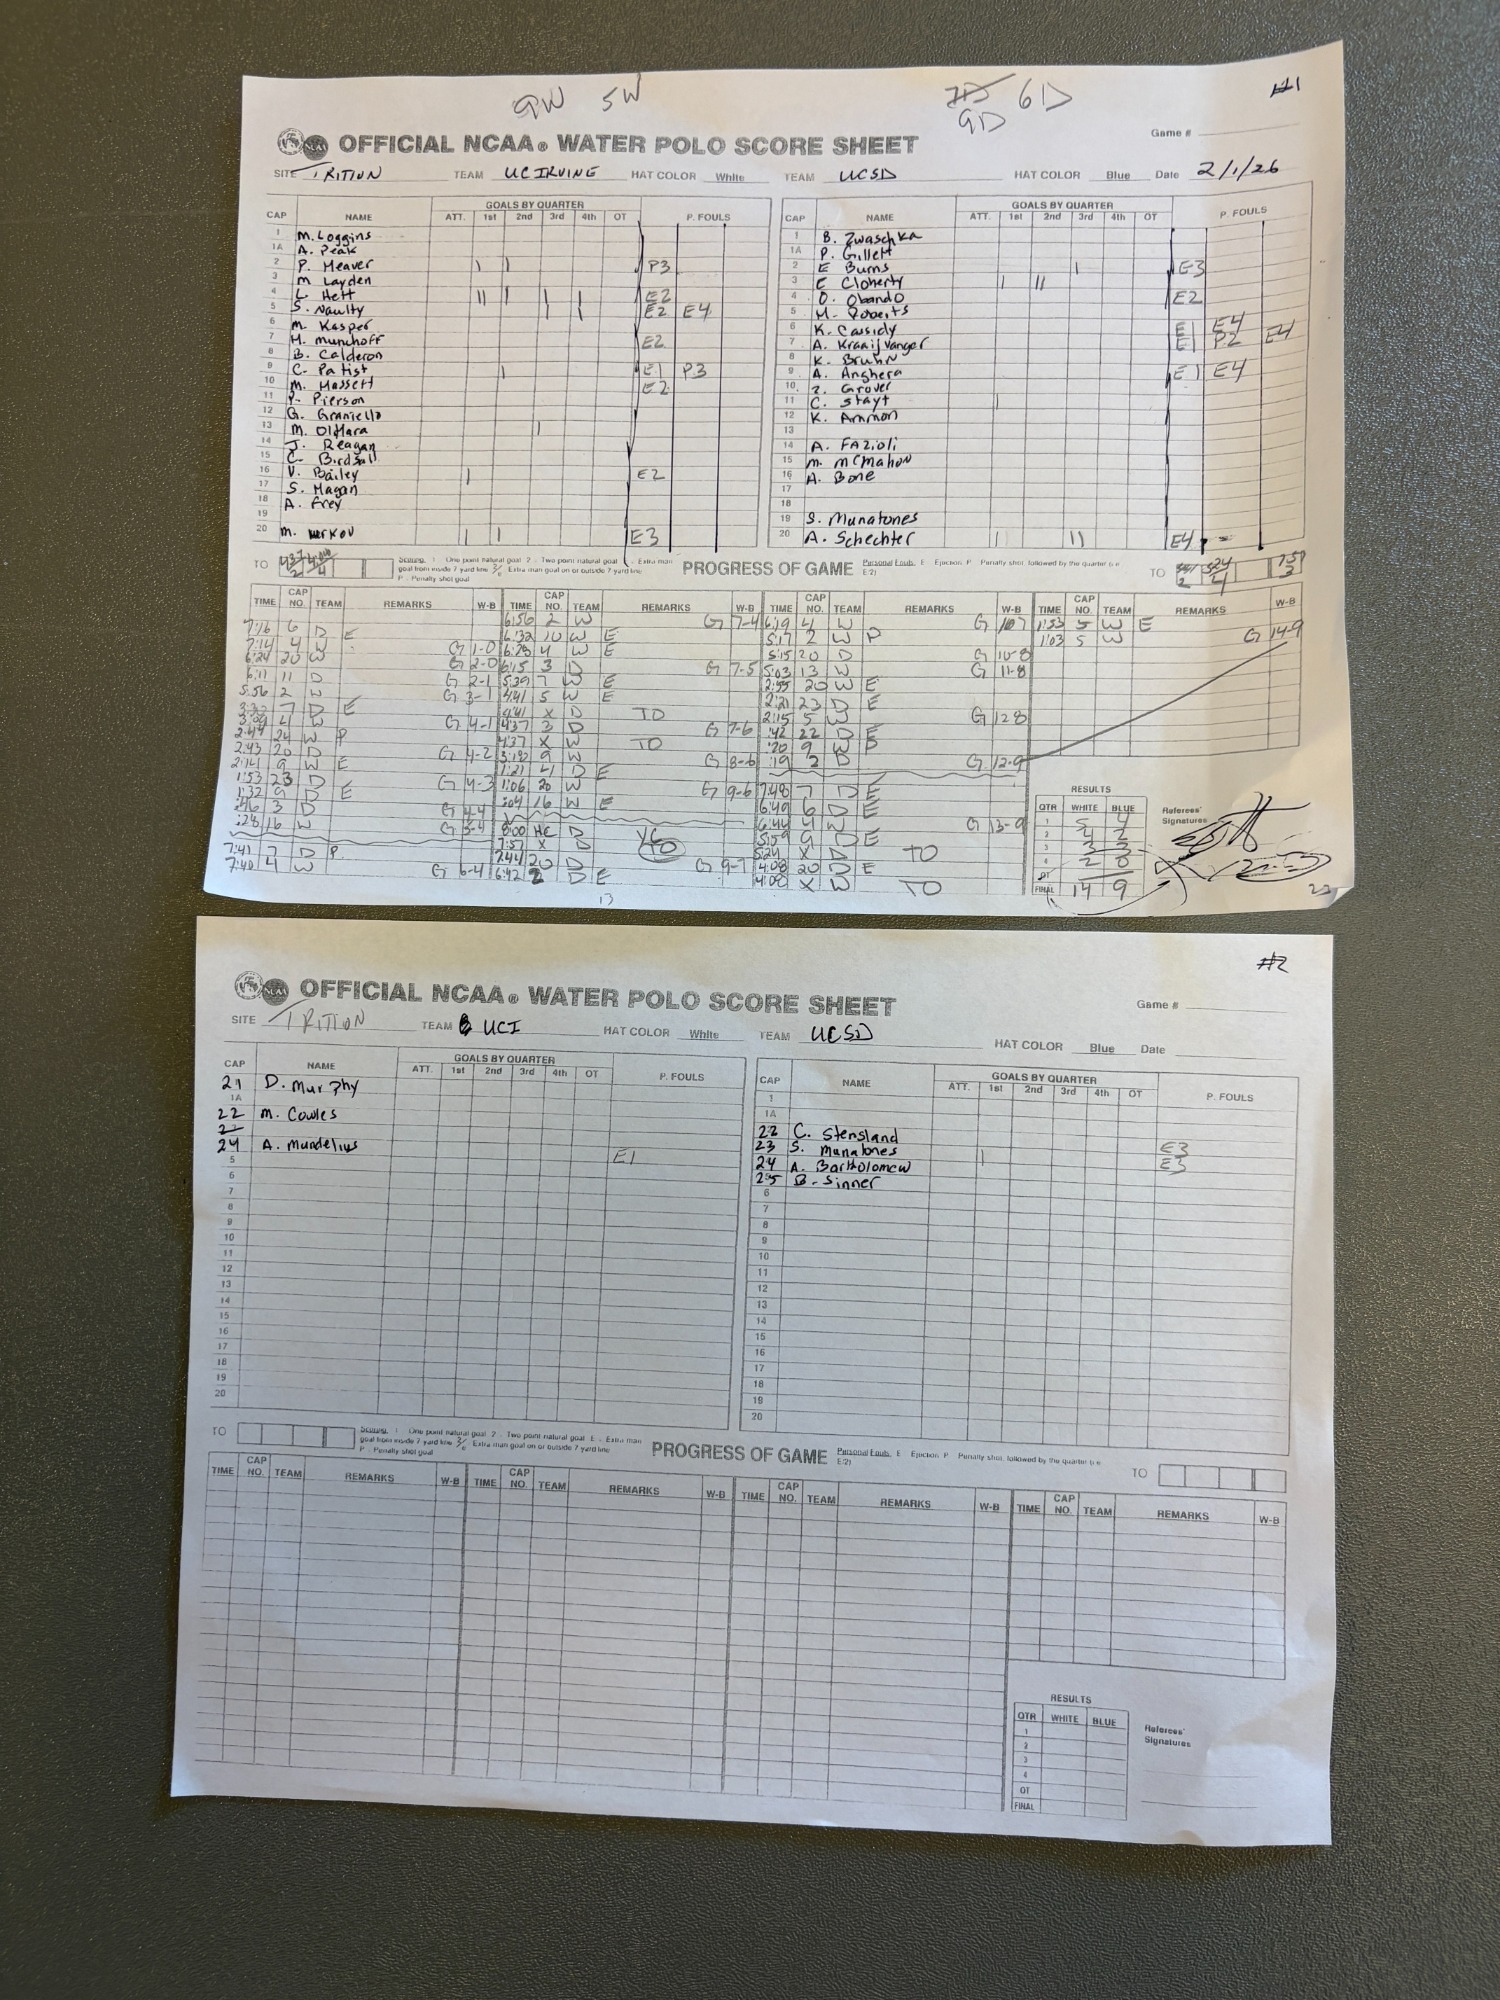 9W 5W 7D 6D #1
9D
OFFICIAL NCAA® WATER POLO SCORE SHEET Game #
SITE TRITION TEAM UC IRVINE HAT COLOR White TEAM UCSD HAT COLOR Blue Date 2/1/26
CAP NAME GOALS BY QUARTER ATT. 1st 2nd 3rd 4th OT P. FOULS
1 M. Loggins
1A A. Peak
2 P. Meaver I I P3
3 M Layden
4 L. Hett II I I I E2
5 S. Naulty I I E2 E4
6 M. Kasper
7 M. Munchoff E2
8 B. Calderon
9 C. Patist I E1 P3
10 M. Hassett E2
11 P. Pierson
12 G. Graniello
13 M. OlHara I
14 J. Reagan
15 C. Birdsall
16 V. Bailey I E2
17 S. Hagan
18 A. Frey
19
20 M. I I E3
CAP NAME GOALS BY QUARTER ATT. 1st 2nd 3rd 4th OT P. FOULS
1 B. Zwaschka
1A P. Gillett
2 E Burns I E3
3 E Cloherty I II
4 O. Obando E2
5 M. Roberts
6 K. Cassidy E1 E4
7 A. Kraaijvanger E1 P2 E4
8 K. Bruhn
9 A. Anghera E1 E4
10 Z. Grover
11 C. Stayt I
12 K. Ammon
13
14 A. FAzioli
15 M. McMahon
16 A. Bone
17
18
19 S. Munatones
20 A. Schechter I II E4
TO 4:37 2 4:00 4
Scoring: 1 - One point natural goal 2 - Two point natural goal E - Extra man
goal from inside 7 yard line 2/E Extra man goal on or outside 7 yard line
P - Penalty shot goal
PROGRESS OF GAME
Personal Fouls: E - Ejection P - Penalty shot, followed by the quarter (i.e.
E/2)
TO 2 5:24 4 7:57 3
TIME CAP NO. TEAM REMARKS W-B
7:16 6 D E
7:14 4 W G 1-0
6:24 20 W G 2-0
6:11 11 D G 2-1
5:56 2 W G 3-1
3:32 7 D E
3:09 4 W G 4-1
2:44 24 W P
2:43 20 D G 4-2
2:14 9 W E
1:53 23 D G 4-3
1:32 9 D E
:46 3 D G 4-4
:28 16 W G 5-4
7:41 7 D P
7:40 4 W G 6-4
TIME CAP NO. TEAM REMARKS W-B
6:56 2 W G 7-4
6:32 10 W E
6:28 4 W E
6:15 3 D G 7-5
5:39 7 W E
4:41 5 W E
4:41 X D TO
4:37 3 D G 7-6
4:37 X W TO
3:18 9 W G 8-6
1:21 4 D E
1:06 20 W G 9-6
:04 16 W E
8:00 HC D YC
7:57 X D TO
7:44 20 D G 9-7
6:42 2 D E
TIME CAP NO. TEAM REMARKS W-B
6:19 4 W G 10-7
5:17 2 W P
5:15 20 D G 10-8
5:03 13 W G 11-8
2:55 20 W E
2:21 23 D E
2:15 5 W G 12-8
:42 22 D E
:20 9 W P
:19 2 D G 12-9
7:48 7 D E
6:49 6 D E
6:44 4 W G 13-9
5:59 9 D E
5:24 X D TO
4:08 20 D E
4:08 X W TO
TIME CAP NO. TEAM REMARKS W-B
1:53 5 W E
1:03 5 W G 14-9
RESULTS
QTR WHITE BLUE
1 5 4
2 4 2
3 3 3
4 2 0
OT
FINAL 14 9
Referees'
Signatures
13
#2
OFFICIAL NCAA® WATER POLO SCORE SHEET Game #
SITE TRITION TEAM UCI HAT COLOR White TEAM UCSD HAT COLOR Blue Date
CAP NAME GOALS BY QUARTER ATT. 1st 2nd 3rd 4th OT P. FOULS
21 D. Murphy
1A
22 M. Cowles
24 A. Mundelius
5 E1
6
7
8
9
10
11
12
13
14
15
16
17
18
19
20
CAP NAME GOALS BY QUARTER ATT. 1st 2nd 3rd 4th OT P. FOULS
1
1A
22 C. Stensland
23 S. Munatones I E3
24 A. Bartholomew E3
25 B. Sinner
6
7
8
9
10
11
12
13
14
15
16
17
18
19
20
TO
Scoring: 1 - One point natural goal 2 - Two point natural goal E - Extra man
goal from inside 7 yard line 2/E Extra man goal on or outside 7 yard line
P - Penalty shot goal
PROGRESS OF GAME
Personal Fouls: E - Ejection P - Penalty shot, followed by the quarter (i.e.
E/2)
TO
TIME CAP NO. TEAM REMARKS W-B TIME CAP NO. TEAM REMARKS W-B TIME CAP NO. TEAM REMARKS W-B TIME CAP NO. TEAM REMARKS W-B
RESULTS
QTR WHITE BLUE
1
2
3
4
OT
FINAL
Referees'
Signatures